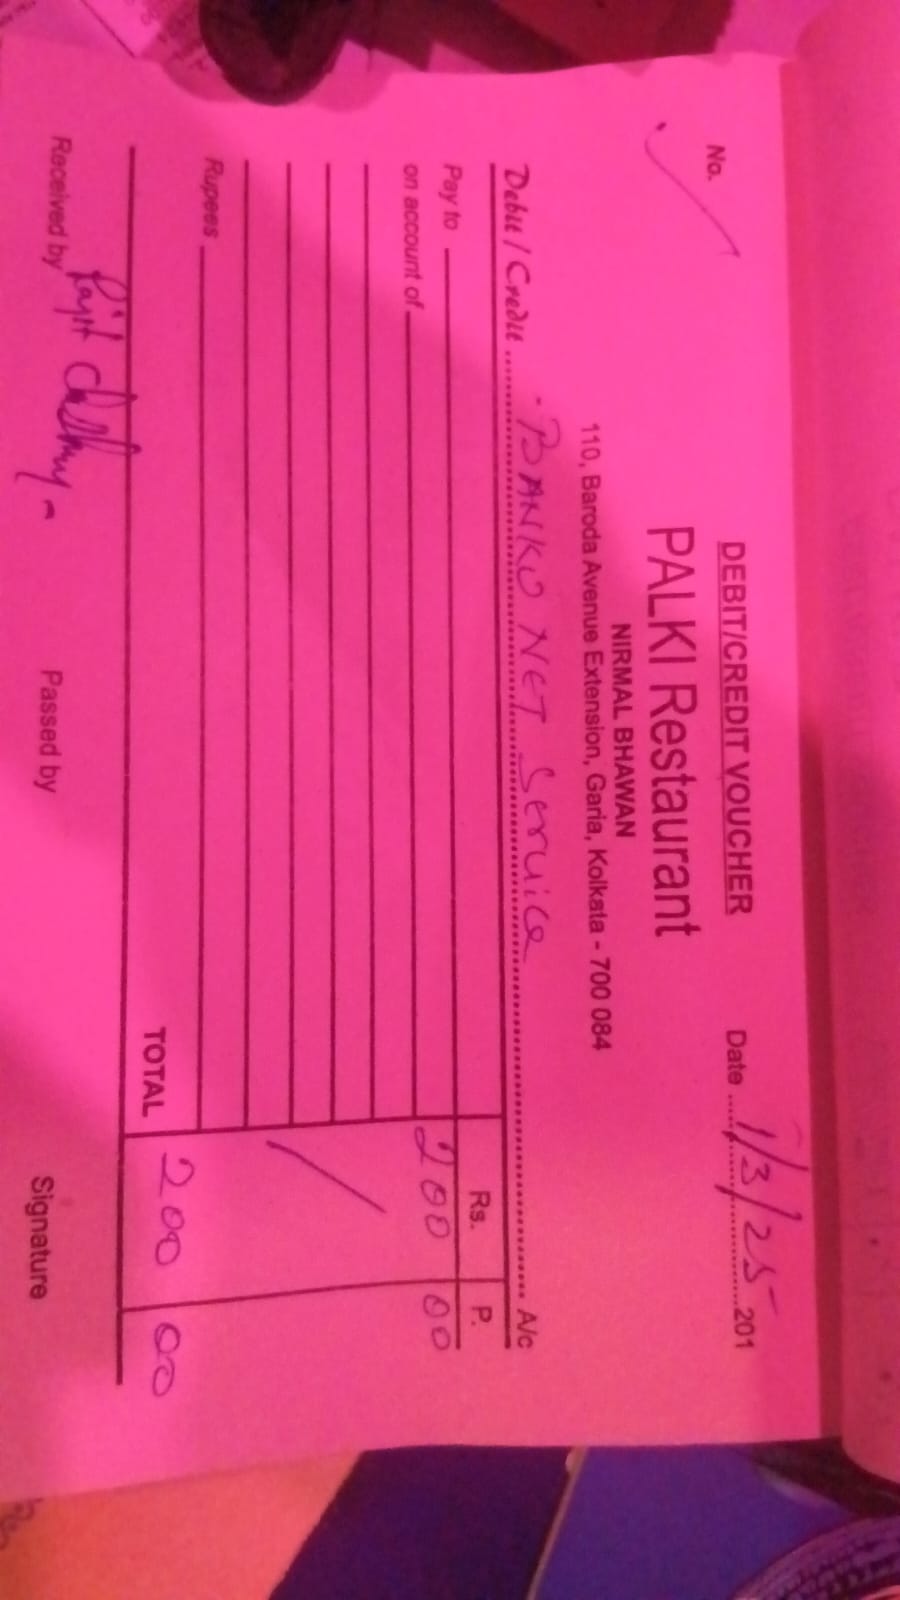 DEBIT/CREDIT VOUCHER
No.
Date 1/3/25 201
PALKI Restaurant
NIRMAL BHAWAN
110, Baroda Avenue Extension, Garia, Kolkata - 700 084
Debit / Credit BANKO NET Service A/c
Rs. P.
Pay to 200 00
on account of
Rupees
TOTAL 200 00
Received by
Passed by
Signature